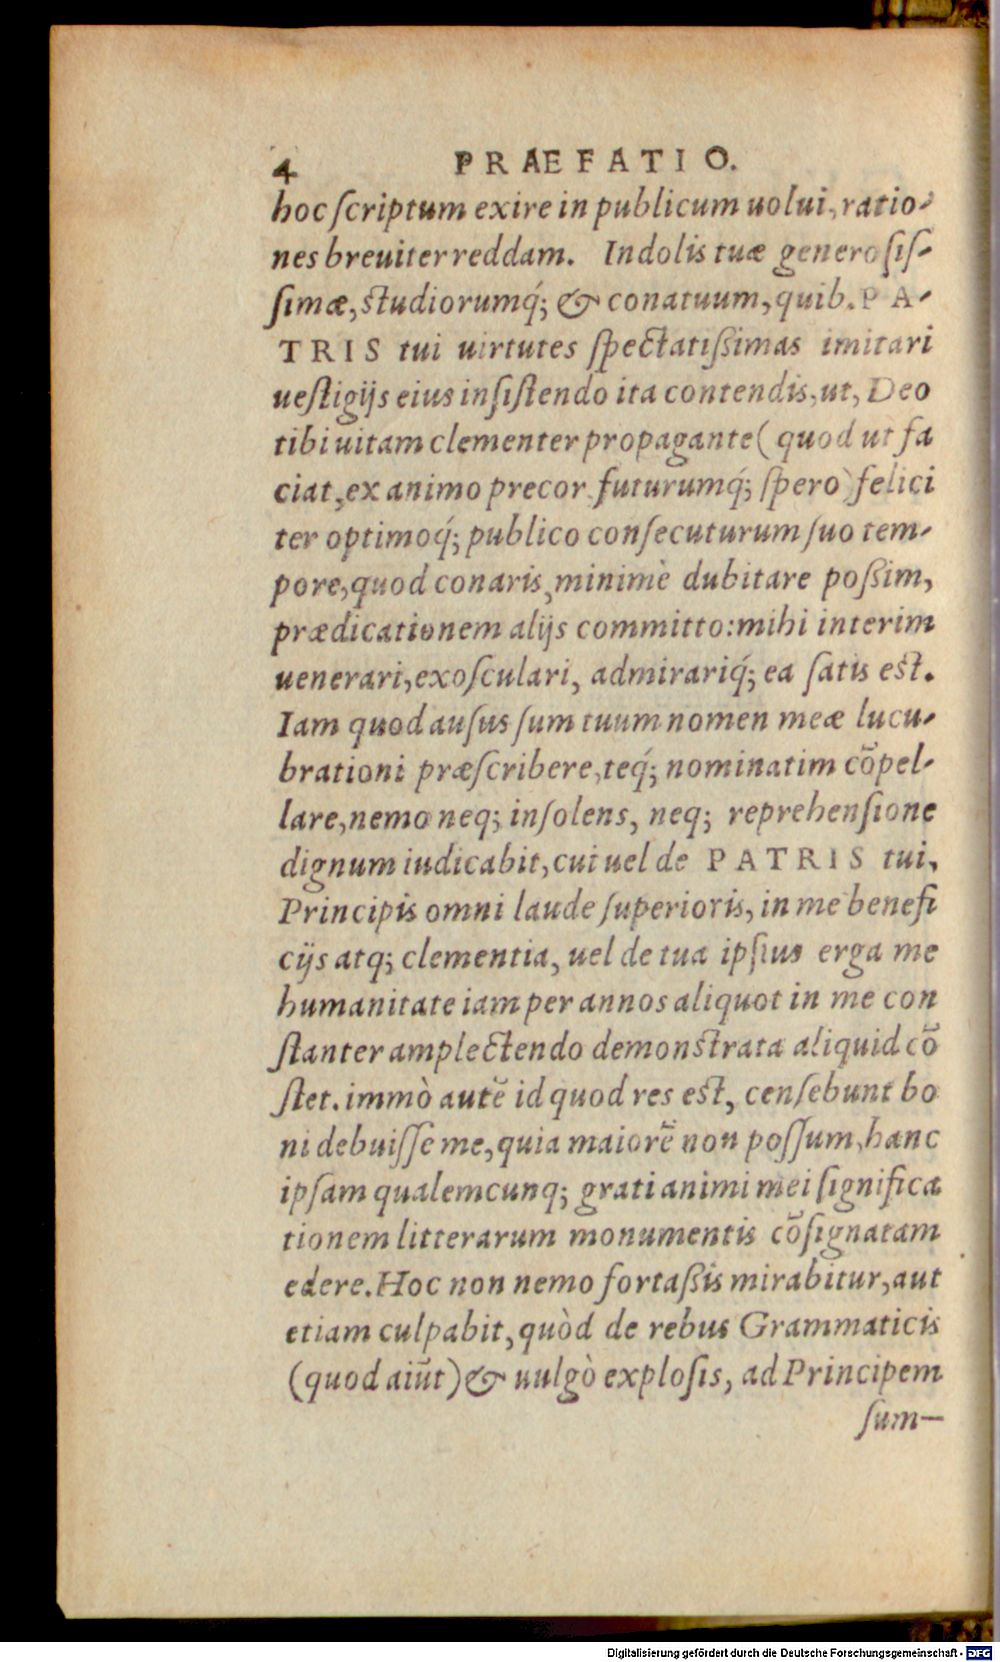 4 PRAEFATIO.
hoc ſcriptum exire in publicum uolui, ratio-
nes breuiter reddam. Indolis tuæ generoſiſ-
ſimæ, ſtudiorumq́; & conatuum, quib. PA-
TRIS tui uirtutes ſpectatißimas imitari
ueſtigijs eius inſiſtendo ita contendis, ut, Deo
tibi uitam clementer propagante (quod ut fa
ciat, ex animo precor futurumq́; ſpero) felici
ter optimoq́; publico conſecuturum ſuo tem-
pore, quod conaris, minimè dubitare poßim,
prædicationem alijs committo: mihi interim
uenerari, exoſculari, admirariq́; ea ſatis eſt.
Iam quod auſus ſum tuum nomen meæ lucu-
brationi præſcribere, teq́; nominatim cõpel-
lare, nemo neq; inſolens, neq; reprehenſione
dignum iudicabit, cui uel de PATRIS tui,
Principis omni laude ſuperioris, in me benefi
cijs atq; clementia, uel de tua ipſius erga me
humanitate iam per annos aliquot in me con
ſtanter amplectendo demonſtrata aliquid cõ
ſtet. immò autẽ id quod res eſt, cenſebunt bo
ni debuiſſe me, quia maiorẽ non poſſum, hanc
ipſam qualemcunq; grati animi mei ſignifica
tionem litterarum monumentis cõſignatam
edere. Hoc non nemo fortaßis mirabitur, aut
etiam culpabit, quòd de rebus Grammaticis
(quod aiũt) & uulgò exploſis, ad Principem
ſum-
Digitalisierung gefördert durch die Deutsche Forschungsgemeinschaft - DFG